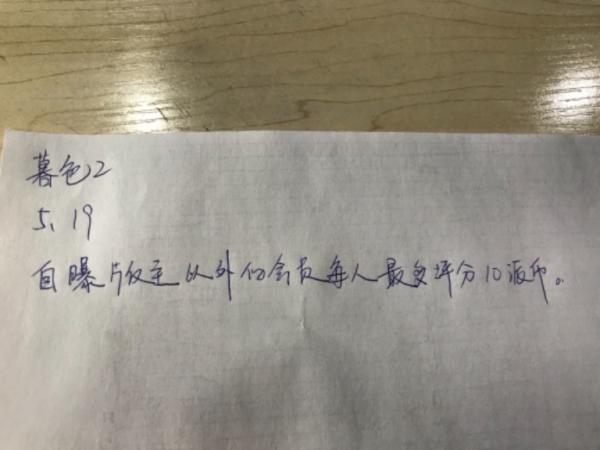 暮色2
5、19
自曝版主以外的会员每人最多评分10派币。